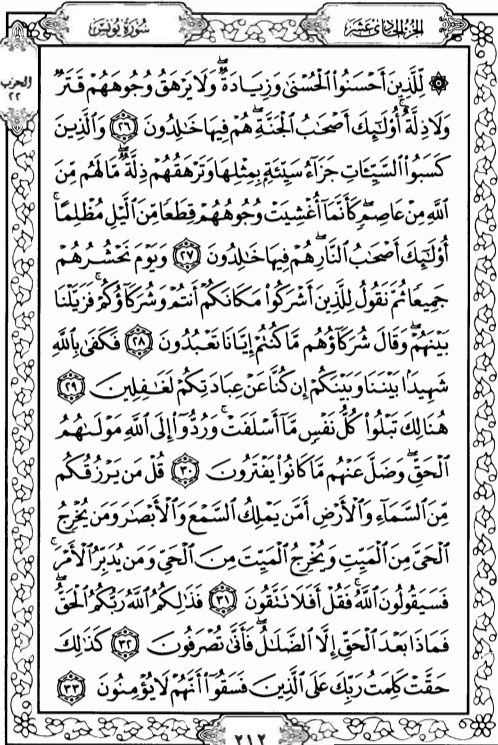 الجُزْءُ الحَادِي عَشَرَ
سُورَةُ يُونُسَ
الحِزْب
٢٢
۞ لِّلَّذِينَ أَحْسَنُوا۟ ٱلْحُسْنَىٰ وَزِيَادَةٌ ۖ وَلَا يَرْهَقُ وُجُوهَهُمْ قَتَرٌ
وَلَا ذِلَّةٌ ۚ أُو۟لَـٰٓئِكَ أَصْحَـٰبُ ٱلْجَنَّةِ ۖ هُمْ فِيهَا خَـٰلِدُونَ ٢٦ وَٱلَّذِينَ
كَسَبُوا۟ ٱلسَّيِّـَٔاتِ جَزَآءُ سَيِّئَةٍۭ بِمِثْلِهَا وَتَرْهَقُهُمْ ذِلَّةٌ ۖ مَّا لَهُم مِّنَ
ٱللَّهِ مِنْ عَاصِمٍ ۖ كَأَنَّمَآ أُغْشِيَتْ وُجُوهُهُمْ قِطَعًا مِّنَ ٱلَّيْلِ مُظْلِمًا ۚ
أُو۟لَـٰٓئِكَ أَصْحَـٰبُ ٱلنَّارِ ۖ هُمْ فِيهَا خَـٰلِدُونَ ٢٧ وَيَوْمَ نَحْشُرُهُمْ
جَمِيعًا ثُمَّ نَقُولُ لِلَّذِينَ أَشْرَكُوا۟ مَكَانَكُمْ أَنتُمْ وَشُرَكَآؤُكُمْ ۚ فَزَيَّلْنَا
بَيْنَهُمْ ۖ وَقَالَ شُرَكَآؤُهُم مَّا كُنتُمْ إِيَّانَا تَعْبُدُونَ ٢٨ فَكَفَىٰ بِٱللَّهِ
شَهِيدًۢا بَيْنَنَا وَبَيْنَكُمْ إِن كُنَّا عَنْ عِبَادَتِكُمْ لَغَـٰفِلِينَ ٢٩
هُنَالِكَ تَبْلُوا۟ كُلُّ نَفْسٍ مَّآ أَسْلَفَتْ ۚ وَرُدُّوٓا۟ إِلَى ٱللَّهِ مَوْلَـٰهُمُ
ٱلْحَقِّ ۖ وَضَلَّ عَنْهُم مَّا كَانُوا۟ يَفْتَرُونَ ٣٠ قُلْ مَن يَرْزُقُكُم
مِّنَ ٱلسَّمَآءِ وَٱلْأَرْضِ أَمَّن يَمْلِكُ ٱلسَّمْعَ وَٱلْأَبْصَـٰرَ وَمَن يُخْرِجُ
ٱلْحَىَّ مِنَ ٱلْمَيِّتِ وَيُخْرِجُ ٱلْمَيِّتَ مِنَ ٱلْحَىِّ وَمَن يُدَبِّرُ ٱلْأَمْرَ ۚ
فَسَيَقُولُونَ ٱللَّهُ ۚ فَقُلْ أَفَلَا تَتَّقُونَ ٣١ فَذَٰلِكُمُ ٱللَّهُ رَبُّكُمُ ٱلْحَقُّ ۖ
فَمَاذَا بَعْدَ ٱلْحَقِّ إِلَّا ٱلضَّلَـٰلُ ۖ فَأَنَّىٰ تُصْرَفُونَ ٣٢ كَذَٰلِكَ
حَقَّتْ كَلِمَتُ رَبِّكَ عَلَى ٱلَّذِينَ فَسَقُوٓا۟ أَنَّهُمْ لَا يُؤْمِنُونَ ٣٣
٢١٢